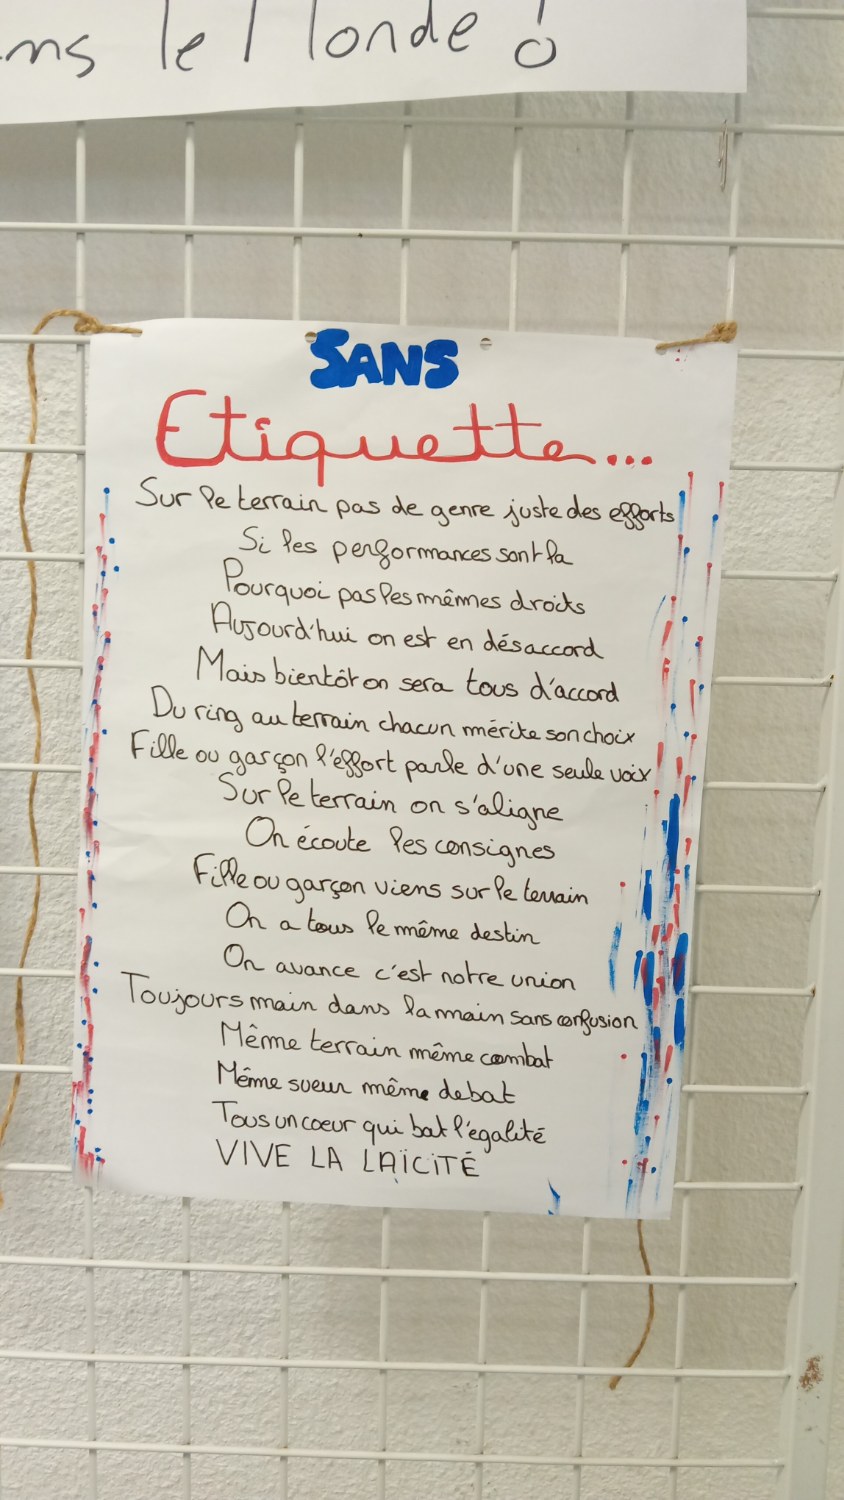 ns le Monde !
SANS
Etiquette...
Sur le terrain pas de genre juste des efforts
Si les performances sont la
Pourquoi pas les mêmes droits
Aujourd'hui on est en désaccord
Mais bientôt on sera tous d'accord
Du ring au terrain chacun mérite son choix
Fille ou garçon l'effort parle d'une seule voix
Sur le terrain on s'aligne
On écoute les consignes
Fille ou garçon viens sur le terrain
On a tous le même destin
On avance c'est notre union
Toujours main dans la main sans confusion
Même terrain même combat
Même sueur même debat
Tous un coeur qui bat l'egalité
VIVE LA LAÏCITÉ